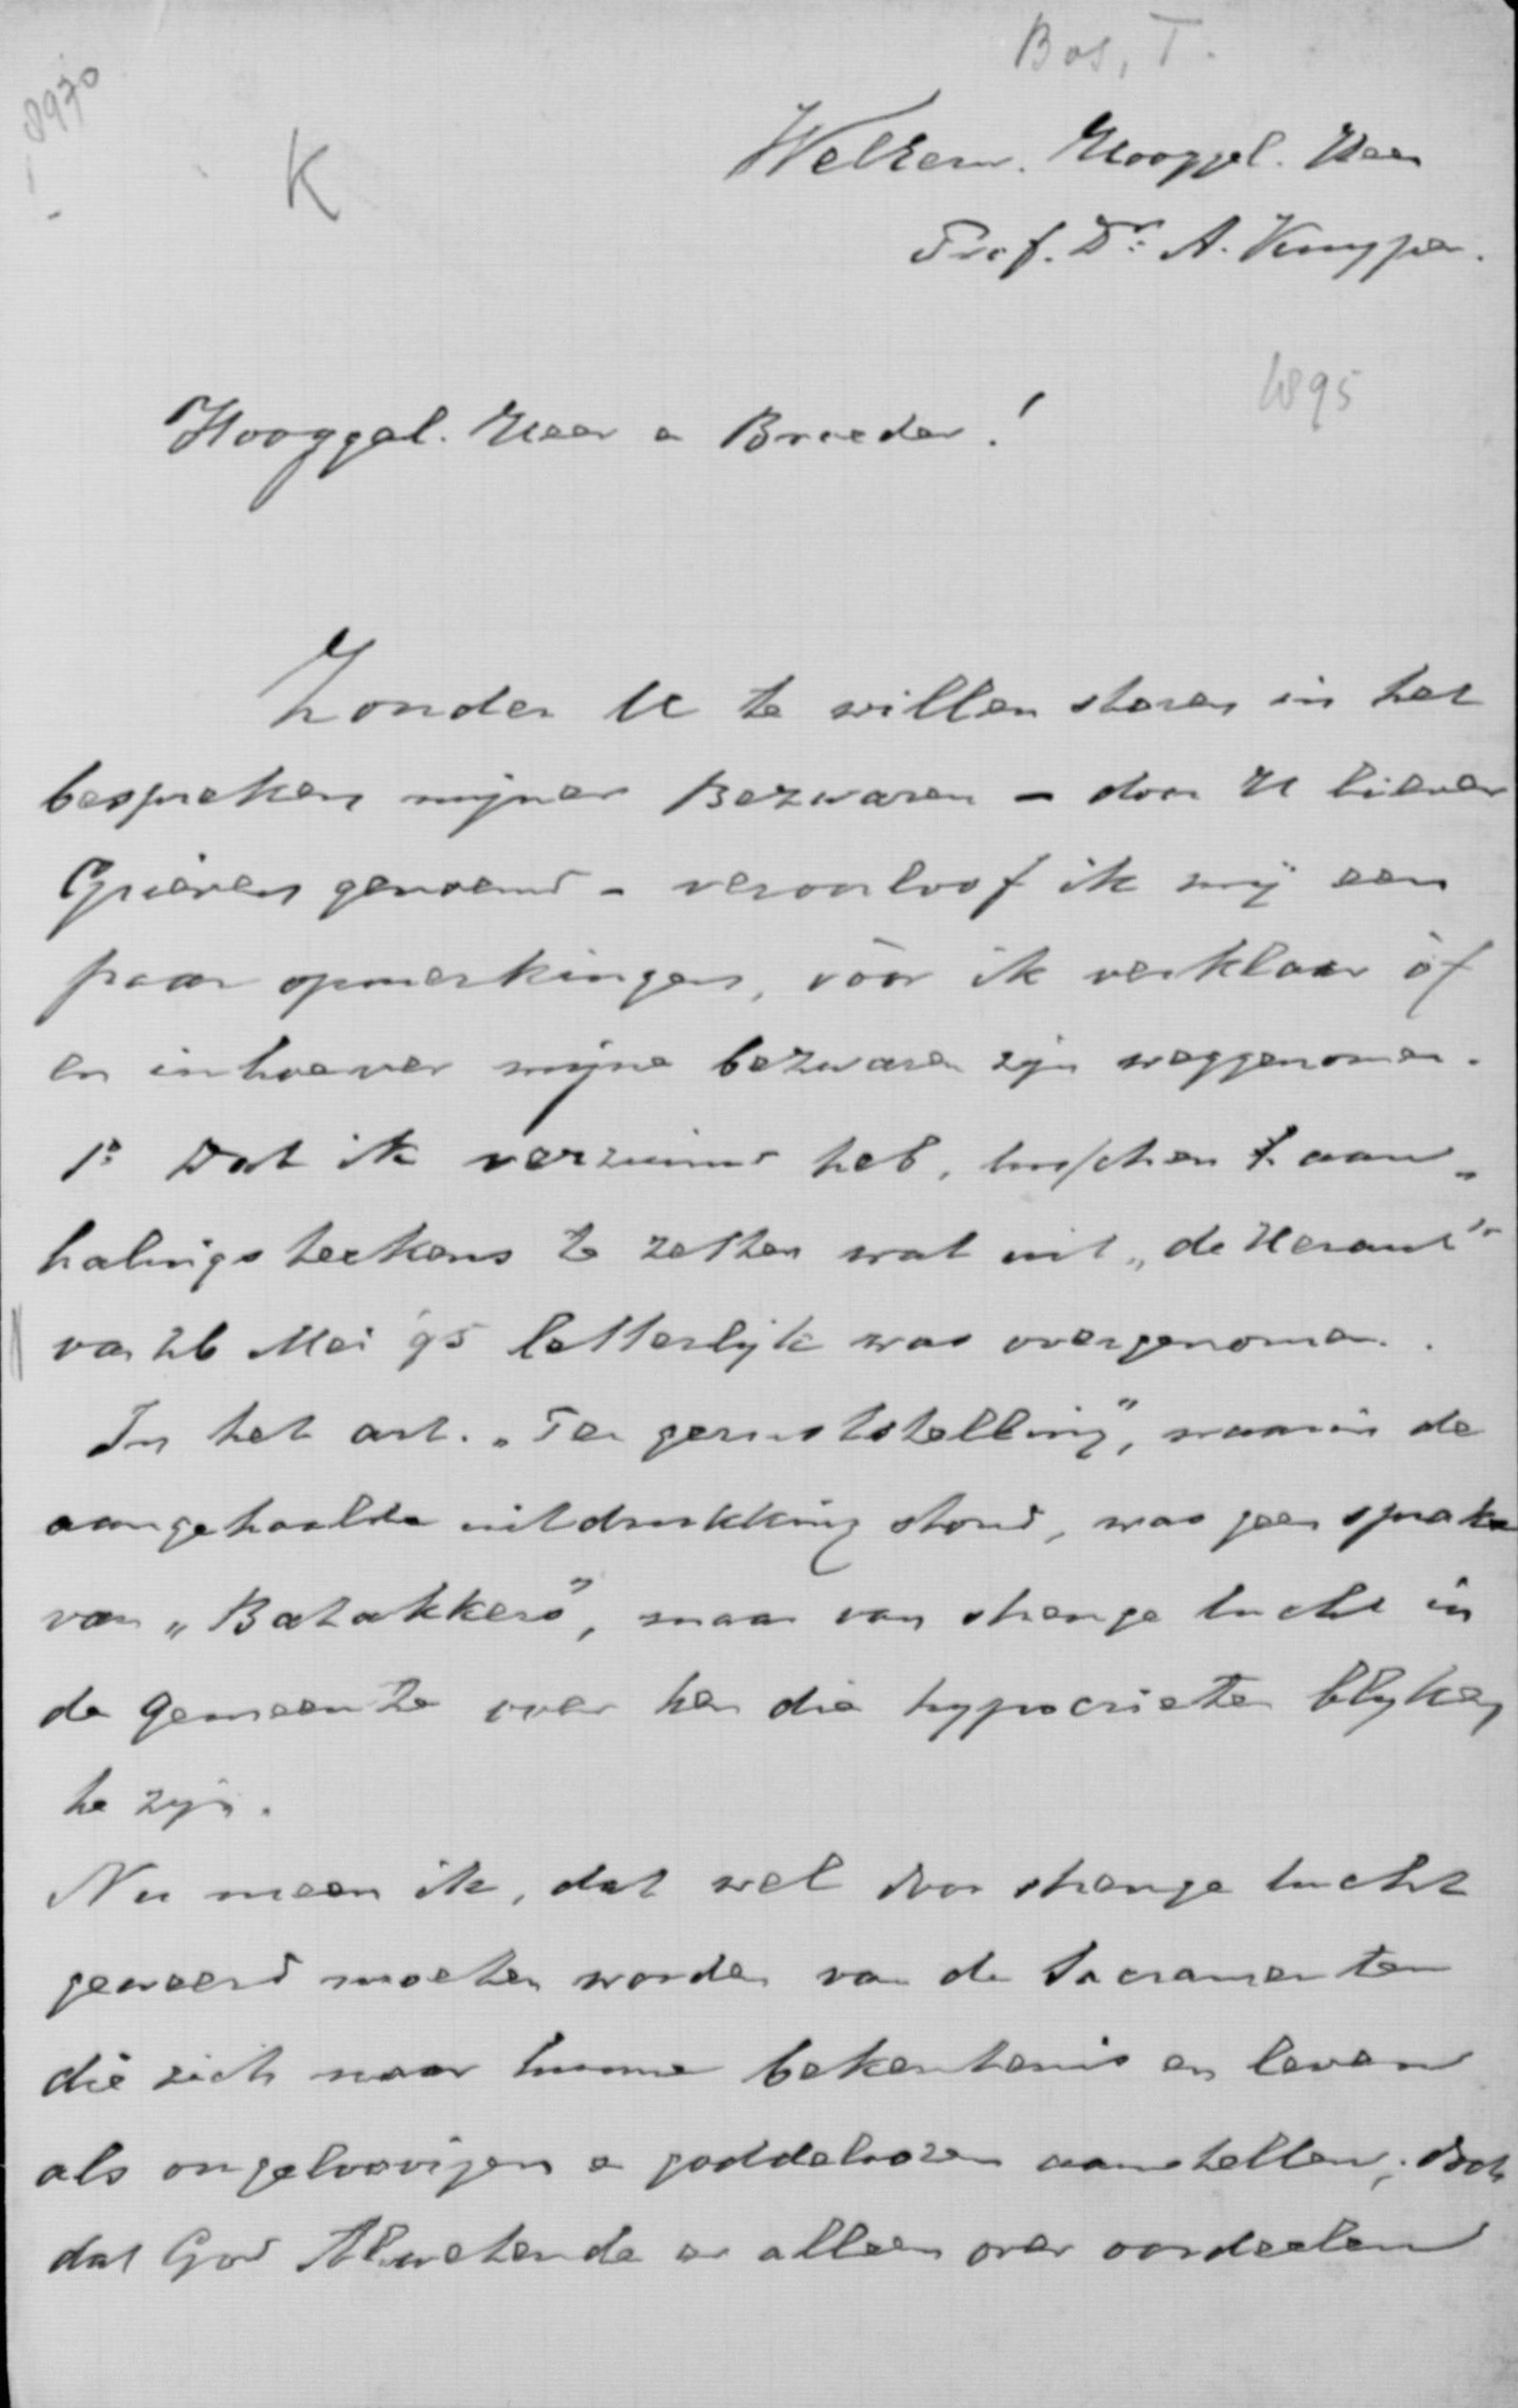 Bos, T.
8970
K
WelEerw. Hooggel. Heer
Prof. Dr. A. Kuyper.
1895
Hooggel. Heer en Broeder!
Zonder U te willen storen in het
bespreken mijner Bezwaren – door U liever
Grieven genoemd – veroorloof ik mij een
paar opmerkingen, vóór ik verklaar òf
en inhoever mijne bezwaren zijn weggenomen.
1º Dat ik verzuimd heb, tusschen aan-
halingsteekens te zetten wat uit „de Heraut"
van 26 Mei 95 letterlijk was overgenomen.
In het art. „Ter geruststelling", waarin de
aangehaalde uitdrukking stond, was geen sprake
van „Batakkers", maar van strenge tucht in
de gemeente over hen die hypocrieten blijken
te zijn.
Nu meen ik, dat wel door strenge tucht
geweerd moeten worden van de Sacramenten
die zich naar hunne bekentenis en leven
als ongeloovigen en goddeloozen aanstellen; doch
dat God Alwetende er alleen over oordeelen